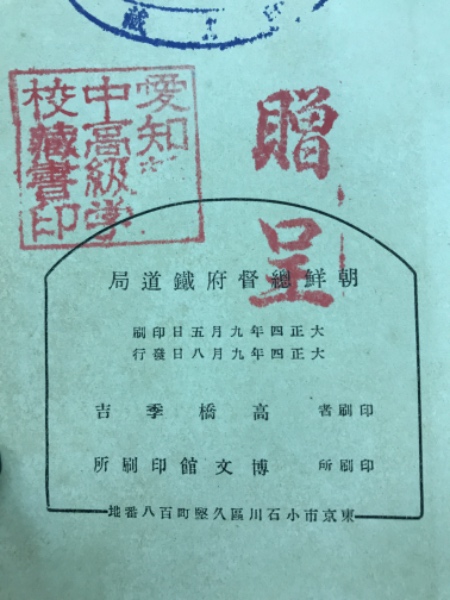 藏
愛知
中高級学
校藏書印
贈呈
朝鮮總督府鐵道局
大正四年九月五日印刷
大正四年九月八日發行
印刷者 高橋季吉
印刷所 博文館印刷所
東京市小石川區久堅町百八番地